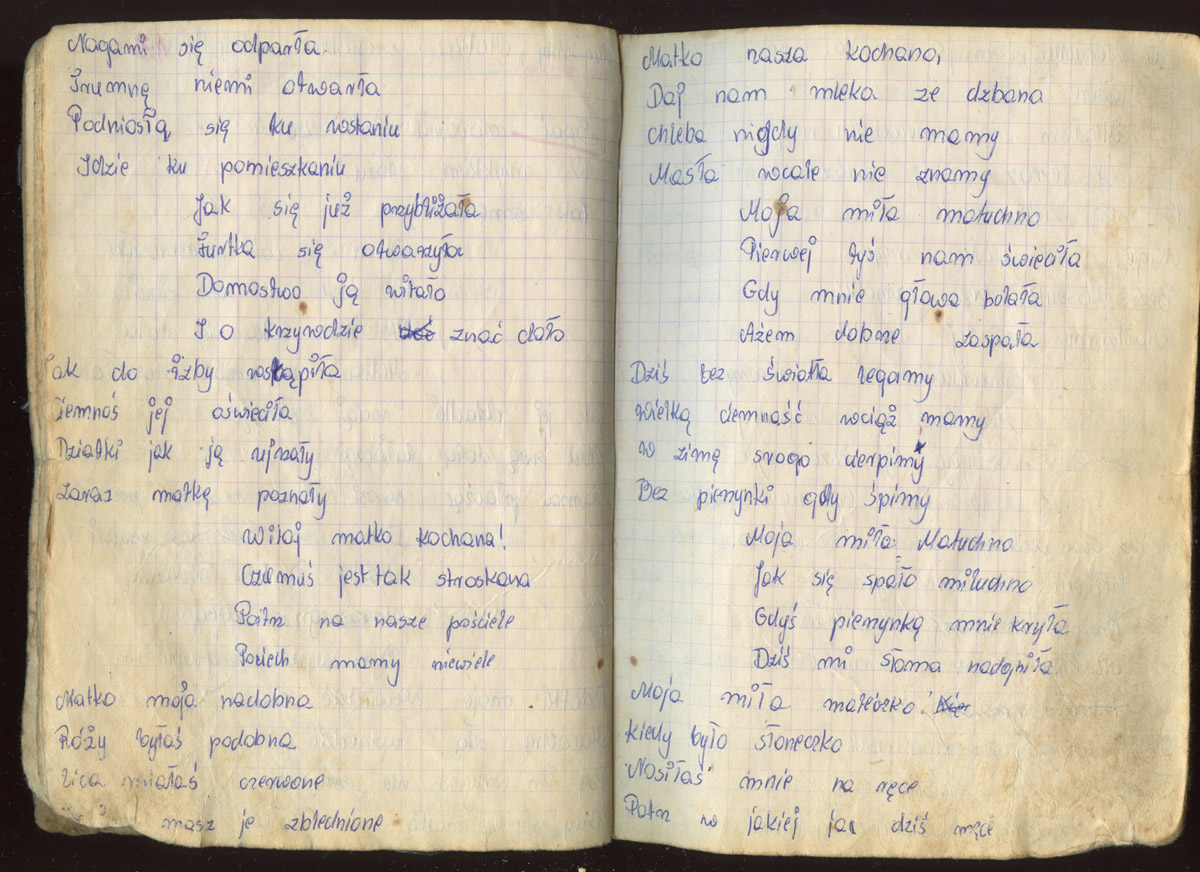 Nogami się odparła
Trumnę niemi otwarła
Podniosłą się ku wstaniu
Idzie ku pomieszkaniu
Jak się już przybliżała
Furtka się otwarzyła
Domostwo ją witało
I o krzywdzie znać dało
ak do izby wstąpiła
Jemnoś jej oświeciła
Dziatki jak ją ujrzały
zaraz matkę poznały
Witaj matko kochana!
Czemuś jest tak stroskana
Patrz na nasze pościele
Pociech mamy niewiele
Matko moja nadobna
Róży byłaś podobna
Lica miałaś czerwone
masz je zblednione
Matko nasza kochano,
Daj nam mleka ze dzbana
chleba nigdy nie mamy
Masła wcale nie znamy
Moja miła matuchno
Pierwej tyś nam świeciła
Gdy mnie głowa bolała
Ażem dobrze zaspała
Dziś bez światła legamy
wielką ciemność wciąż mamy
w zimę srogo cierpimy
Bez pierzynki gdy śpimy
Moja miła Matuchno
Jak się spało miluchno
Gdyś pierzynką mnie kryła
Dziś mi słoma nadgniła
Moja miła mateczko!
kiedy było słoneczko
Nosiłaś mnie na ręce
Patrz w jakiej jam dziś męce